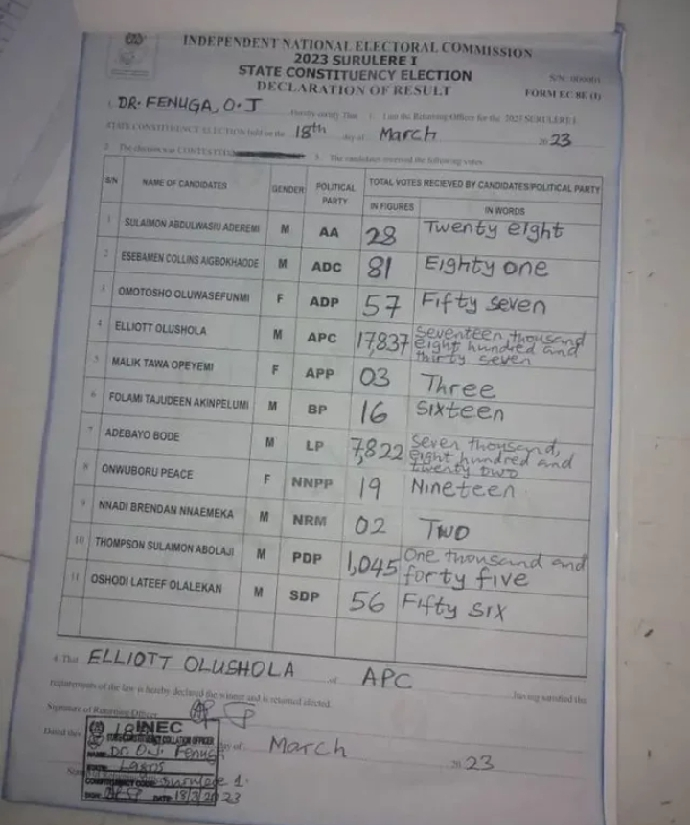 INDEPENDENT NATIONAL ELECTORAL COMMISSION
2023 SURULERE I
STATE CONSTITUENCY ELECTION
DECLARATION OF RESULT
FORM EC 8E (I)
1. DR. FENUGA, O.J Hereby certify That I am the Returning Officer for the 2023 SURULERE I
STATE CONSTITUENCY ELECTION held on the 18th day of March 2023
2. The election was CONTESTED 3. The candidates received the following votes
S/N NAME OF CANDIDATES GENDER POLITICAL PARTY TOTAL VOTES RECIEVED BY CANDIDATES/POLITICAL PARTY
IN FIGURES IN WORDS
1 SULAIMON ABDULWASIU ADEREMI M AA 28 Twenty eight
2 ESEBAMEN COLLINS AIGBOKHAODE M ADC 81 Eighty one
3 OMOTOSHO OLUWASEFUNMI F ADP 57 Fifty seven
4 ELLIOTT OLUSHOLA M APC 17,837 seventeen thousand eight hundred and thirty seven
5 MALIK TAWA OPEYEMI F APP 03 Three
6 FOLAMI TAJUDEEN AKINPELUMI M BP 16 Sixteen
7 ADEBAYO BODE M LP 7,822 seven thousand, eight hundred and twenty two
8 ONWUBORU PEACE F NNPP 19 Nineteen
9 NNADI BRENDAN NNAEMEKA M NRM 02 Two
10 THOMPSON SULAIMON ABOLAJI M PDP 1,045 One thousand and forty five
11 OSHODI LATEEF OLALEKAN M SDP 56 Fifty six
4. That ELLIOTT OLUSHOLA of APC having satisfied the
requirements of the law is hereby declared the winner and is returned elected.
Signature of Returning Officer
Dated this 18 day of March 2023
INEC
STATE CONSTITUENCY COLLATION OFFICER
NAME: Dr. O.J. Fenuga
STATE: Lagos
CONSTITUENCY CODE: Surulere 1.
SIGN: DATE: 18/3/2023